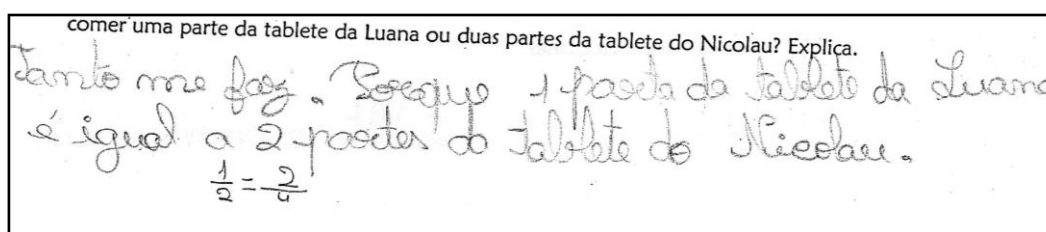 comer uma parte da tablete da Luana ou duas partes da tablete do Nicolau? Explica.
Tanto me faz. Porque 1 parte da tablete da Luana
é igual a 2 partes da tablete do Nicolau.
1/2 = 2/4